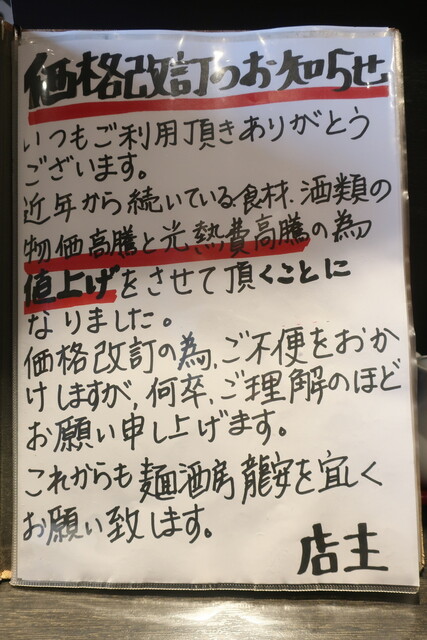 価格改訂のお知らせ
いつもご利用頂きありがとう
ございます。
近年から続いている食材、酒類の
物価高騰と光熱費高騰の為
値上げをさせて頂くことに
なりました。
価格改訂の為、ご不便をおか
けしますが、何卒、ご理解のほど
お願い申し上げます。
これからも麺酒房龍安を宜しく
お願い致します。
店主